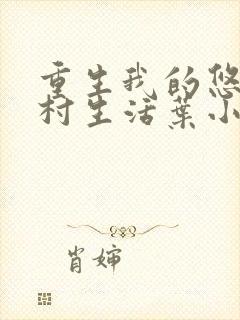 重生我的悠
村生活葉小
肖婶